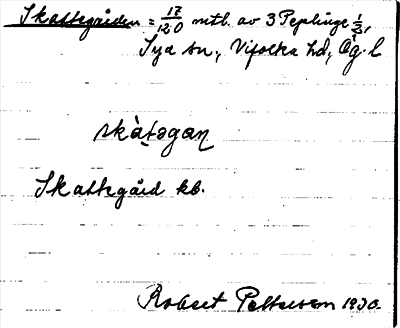 Skattegården = 17/120 mtl. av 3 Peplinge 1/3,
Sya sn, Vifolka hd, Ög. l
skàtəgan
Skattegård kb.
Robert Pettersson 1930.